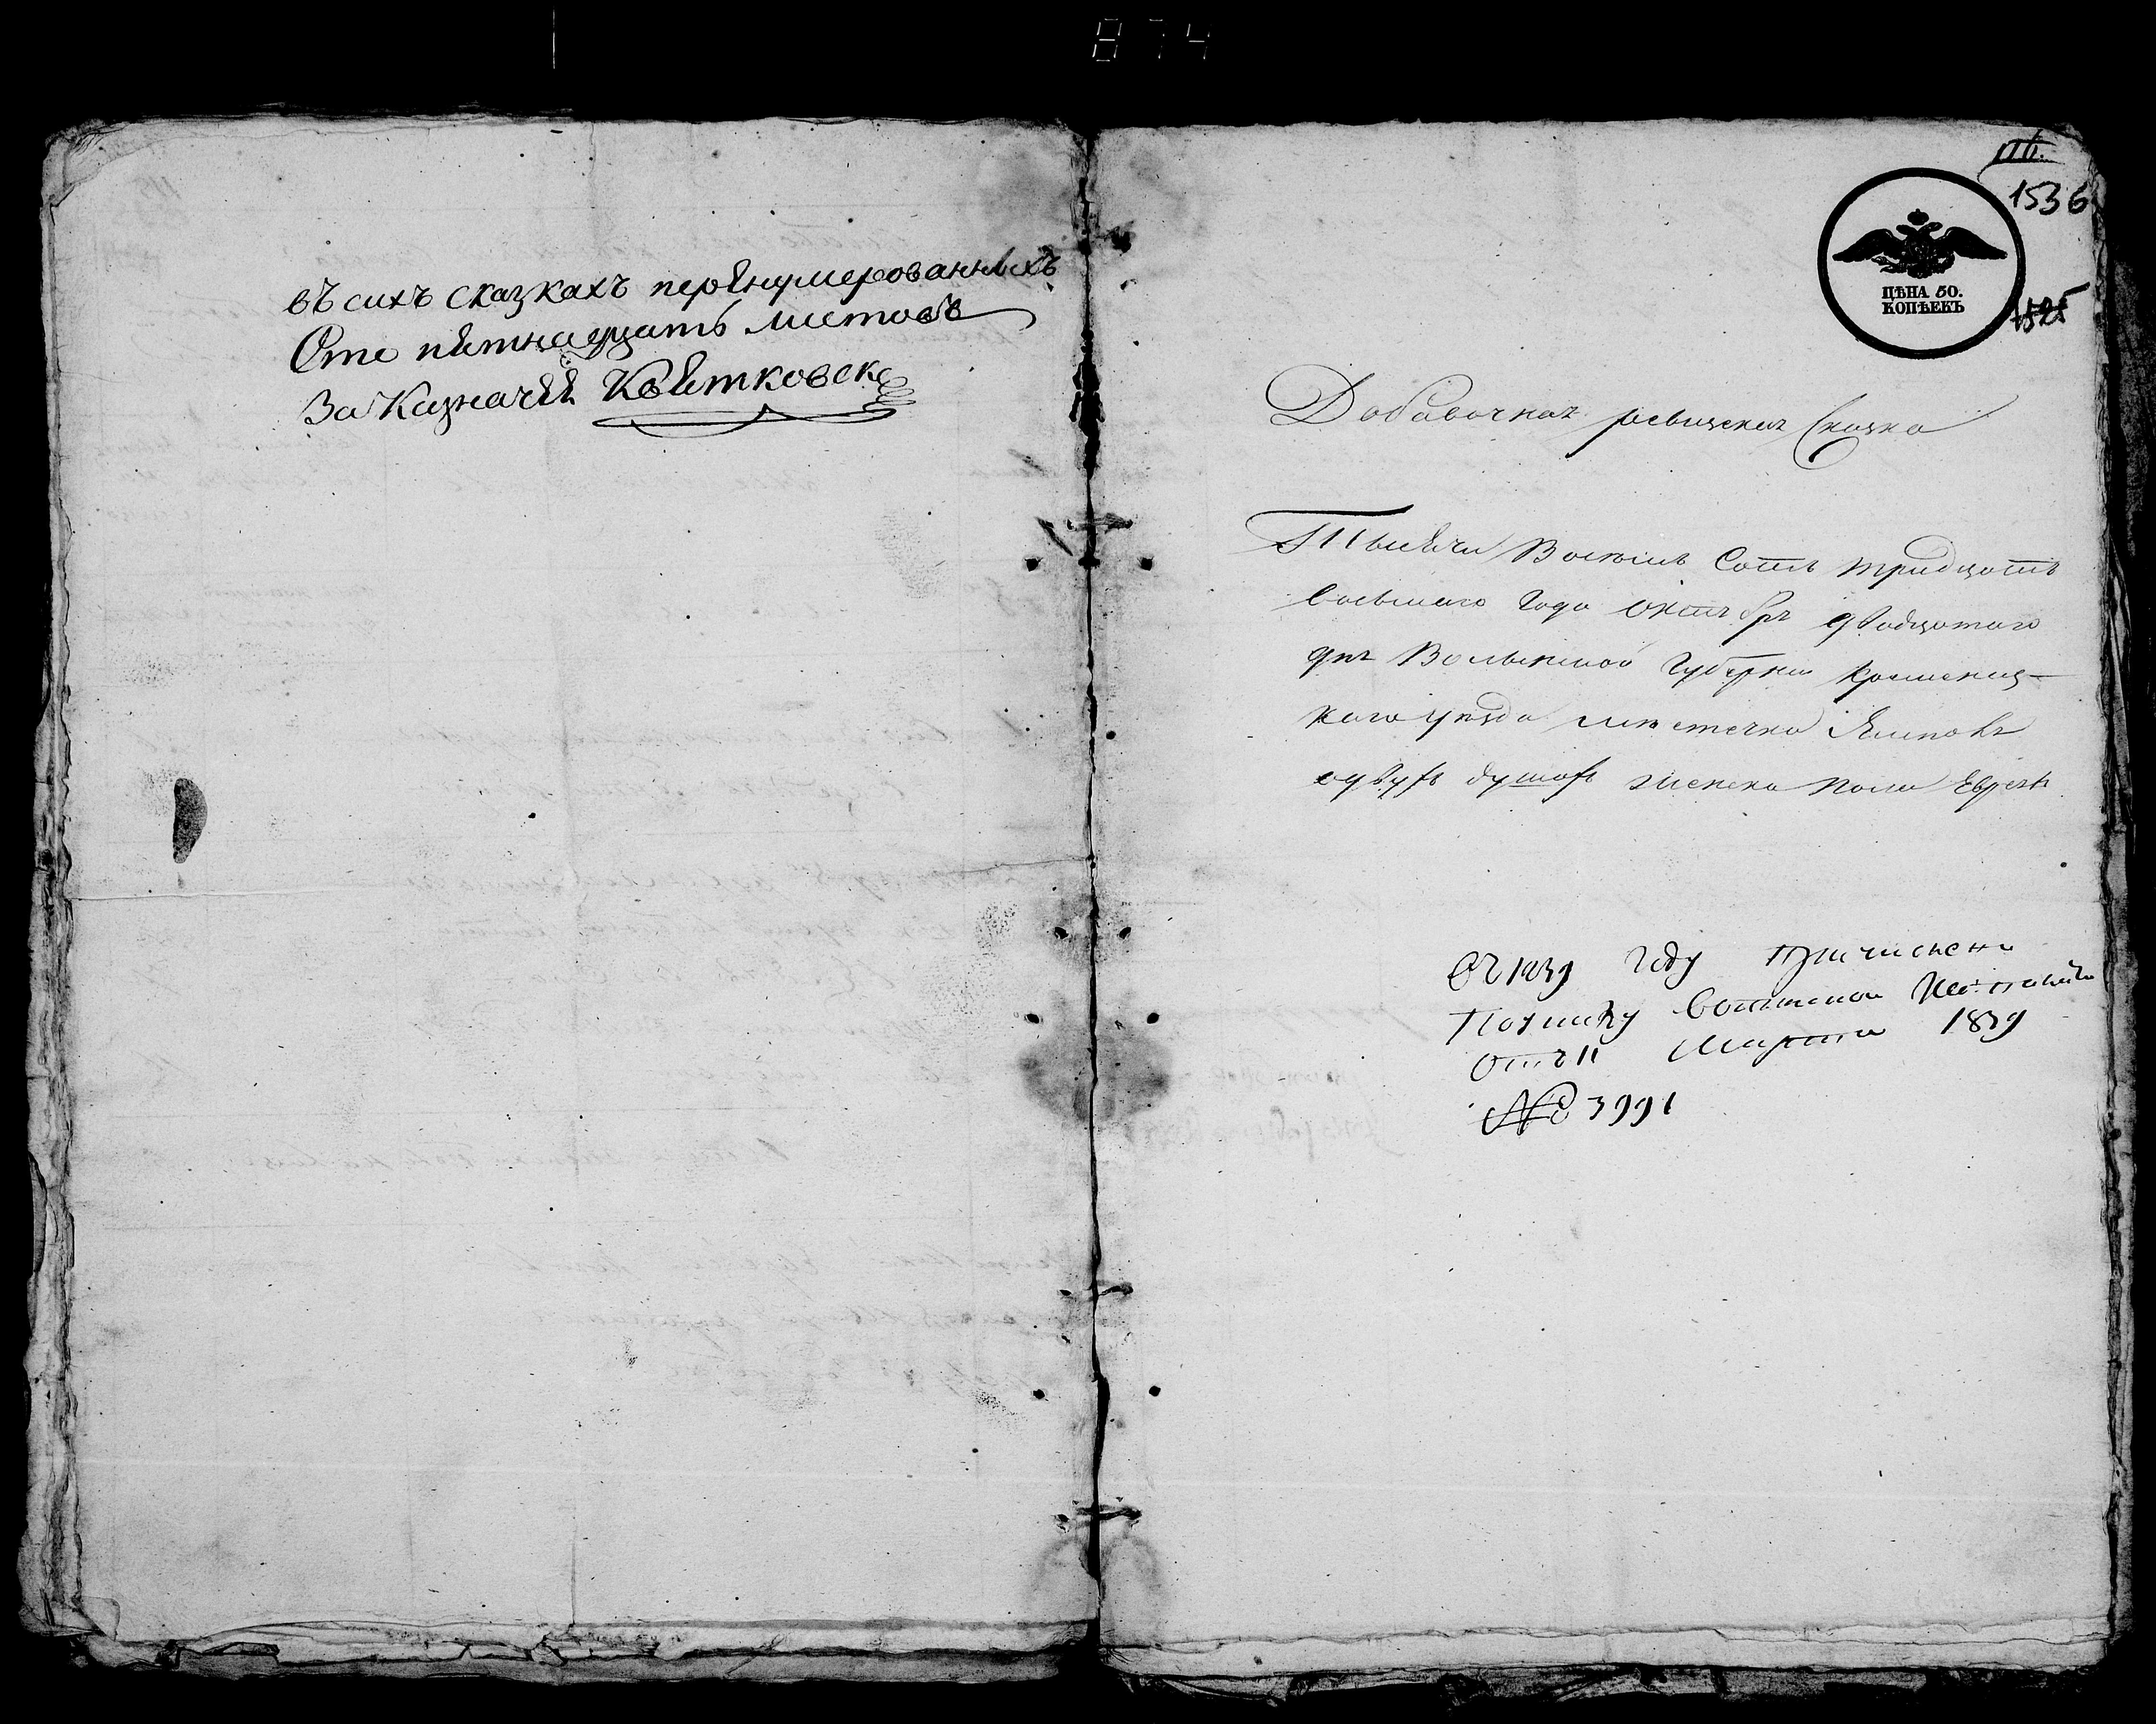 874
въ сихъ сказкахъ перенумерованныхъ
Сто пятнадцать листовъ
За Казначея Квятковск
116.
1536
ЦѢНА 50.
КОПѢЕКЪ
1525
Добавочная ревизская Сказка
Тысяча Восемь Сотъ тридцать
восьмаго Года Октября двадцатаго
дня Волынской Губерніи Кременец-
каго уѣзда мѣстечка Ямполя
о двухъ душахъ женска пола Евреяхъ
съ 1839 году причислены
По указу Волынской
Отъ 11 Марта 1839
№ 3991